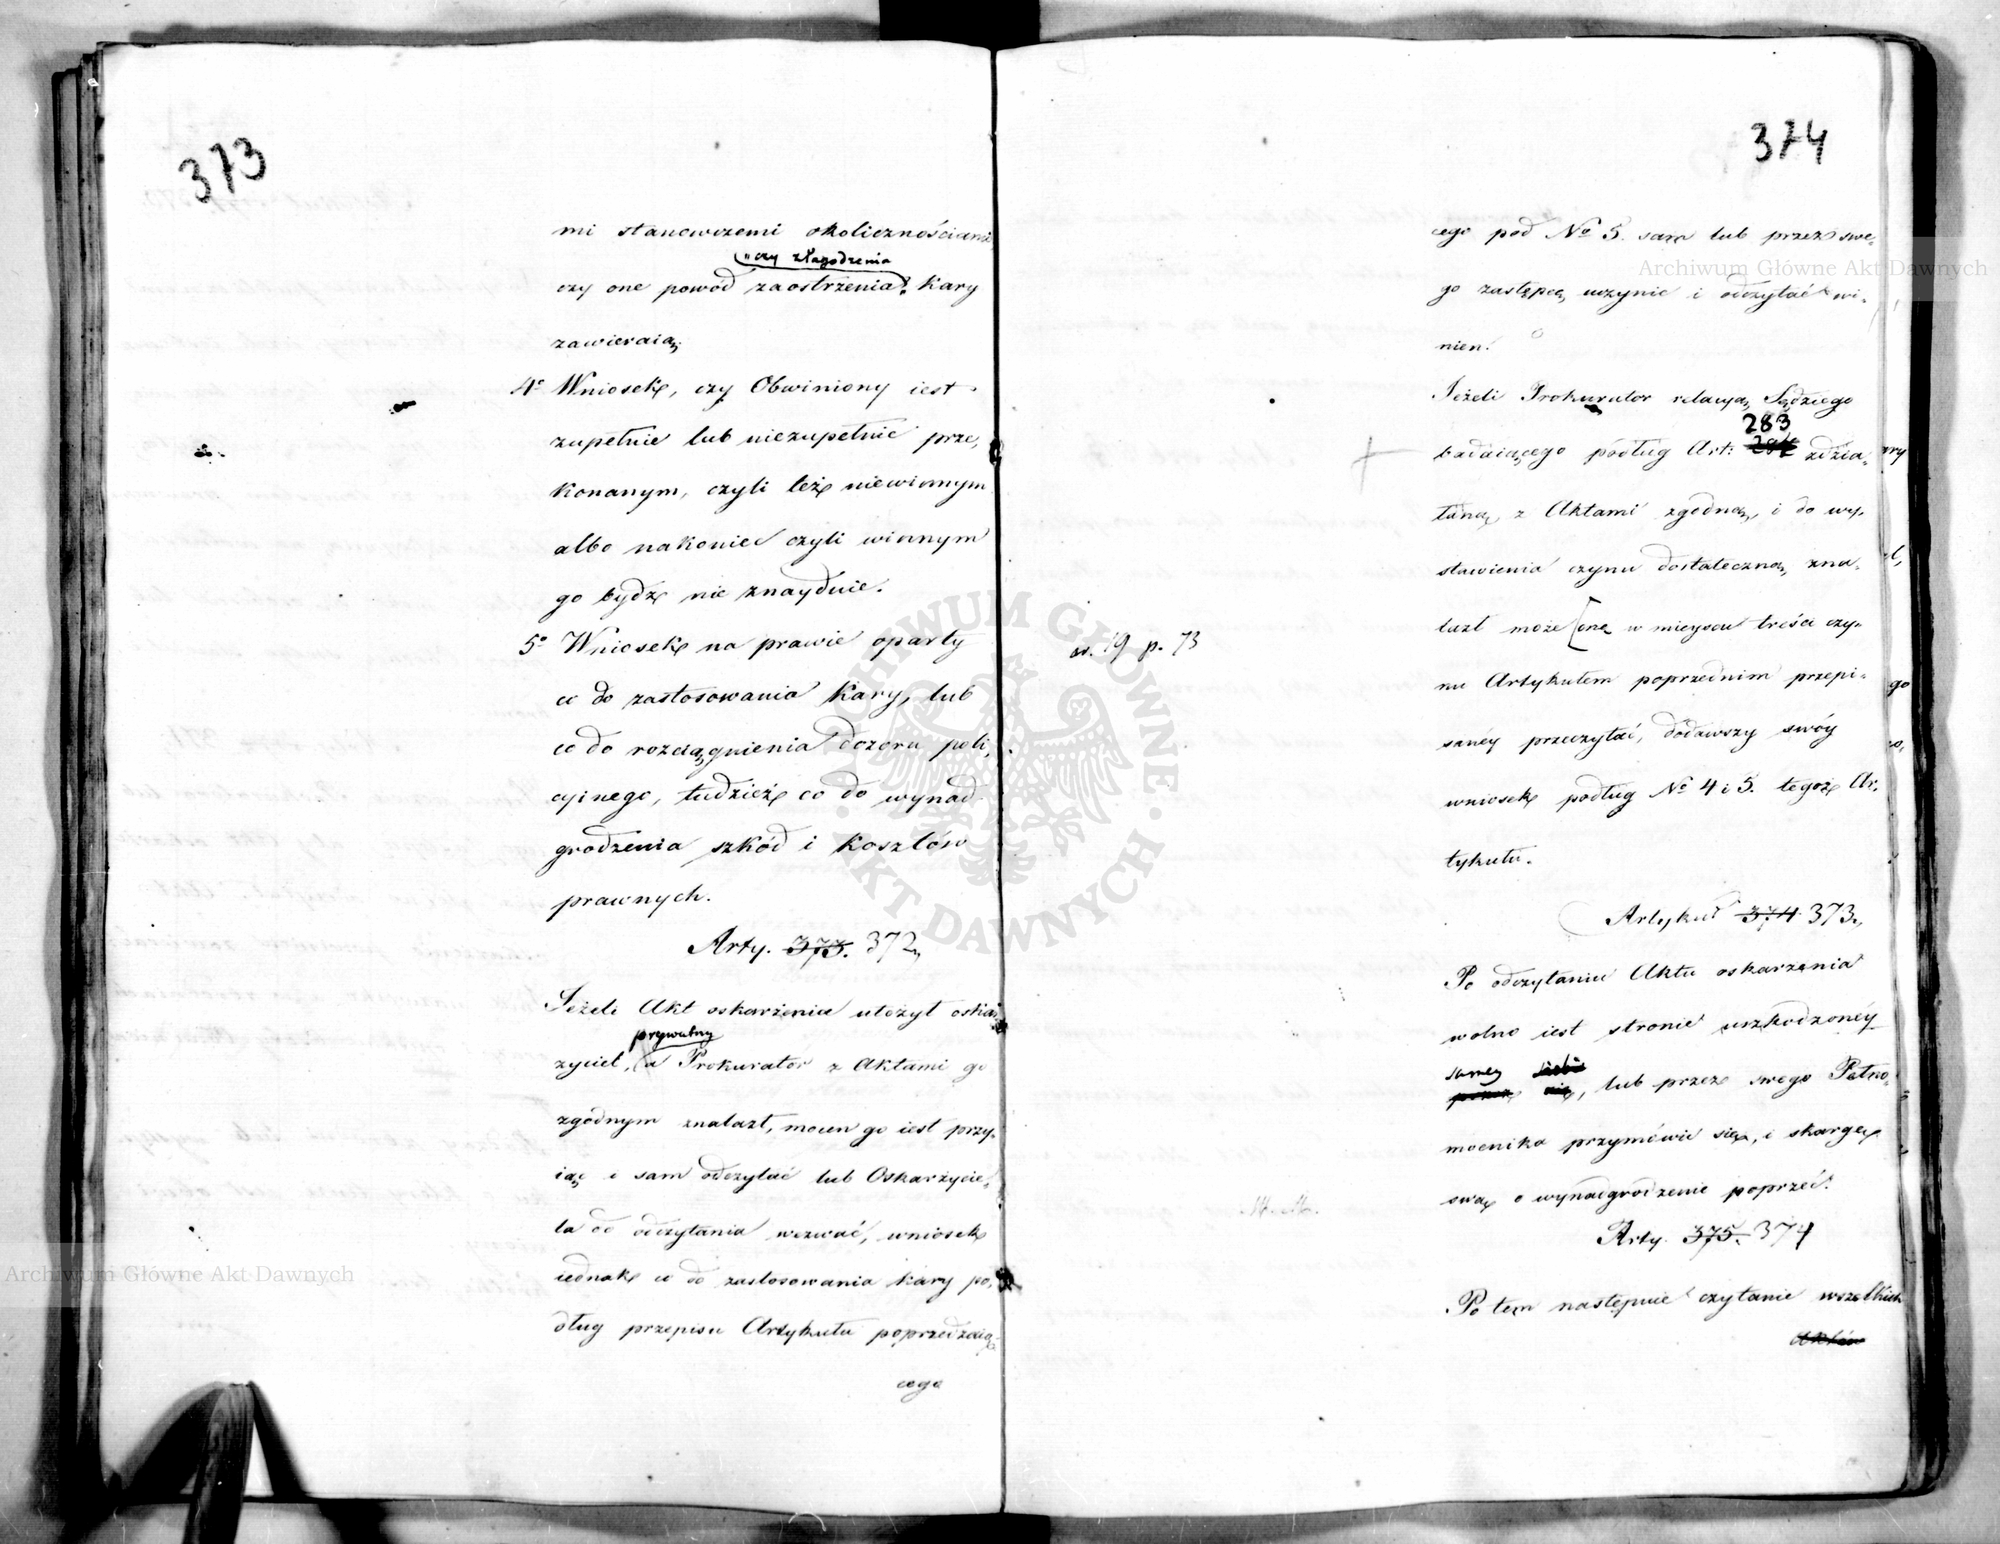 373
mi stanowczemi okolicznościami
„czy złagodzenia
czy one powód zaostrzenia kary
zawieraią.
4º Wniosek, czy Obwiniony iest
zupełnie lub niezupełnie prze„
konanym, czyli też niewinnym
albo nakoniec czyli winnym
go bydź nie znayduie.
5º Wniosek na prawie oparty
co do zastosowania kary, lub
co do rozciągnienia dozoru poli„
cyinego, tudzież co do wynad
grodzenia szkód i kosztów
prawnych.
Arty. 373. 372„
Jeżeli Akt oskarżenia ułożył oskar
prywatny
życiel, a Prokurator z Aktami go
zgodnym znalazł, mocen go iest przy„
iąć i sam odczytać lub Oskarżycie„
la do odczytania wezwać, wniosek
iednak co do zastosowania kary po„
dług przepisu Artykułu poprzedzaią„
cego
374
cego pod Nº 5. sam lub przez swe„
go zastępcę uczynić i odczytać wi„
nien.
Jeżeli Prokurator relacyą Sędziego
283
badaiącego podług Art: 284 zdzia„
łaną, z Aktami zgodną, i do wy„
stawienia czynu dostateczną, zna„
lazł może [onę w mieyscu treści czy„
nu Artykułem poprzednim przepi„
saney przeczytać, dodawszy swóy
wniosek podług Nº 4 i 5. tegoż Ar„
tykułu.
w. 19 p. 73
Artykuł 374 373„
Po odczytaniu Aktu oskarżenia
wolno iest stronie uszkodzoney
samey siebie
przez nię, lub przez swego Pełno„
mocnika przymówić się, i skargę
swą o wynadgrodzenie poprzeć.
Arty. 375. 374
Po tem następuie czytanie wszelkich
Aktów
Archiwum Główne Akt Dawnych
Archiwum Główne Akt Dawnych
ARCHIWUM GŁÓWNE AKT DAWNYCH